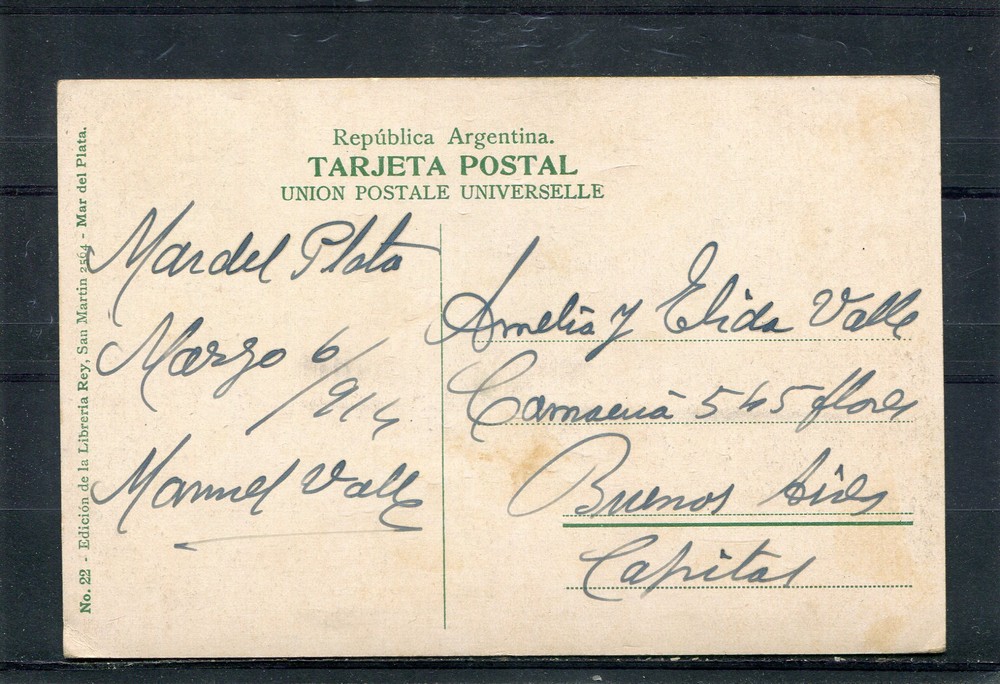 República Argentina.
TARJETA POSTAL
UNION POSTALE UNIVERSELLE
No. 22 - Edición de la Libreria Rey, San Martin 2564 - Mar del Plata.
Mar del Plata
Marzo 6/914
Manuel Valle
Amelia y Elida Valle
545 flores
Buenos Aires
Capital